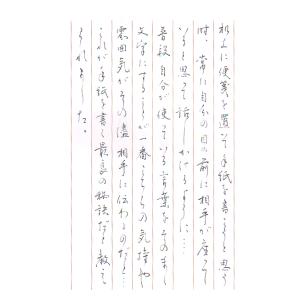 机上に便箋を置いて手紙を書こうと思う
時、常に自分の目の前に相手が座って
いると思って話しかけるように…
普段自分が使っている言葉をそのまゝ
文字にすることが一番こちらの気持や
雰囲気がその儘相手に伝わるのだと…
これが手紙を書く最良の秘訣だと教え
られました。